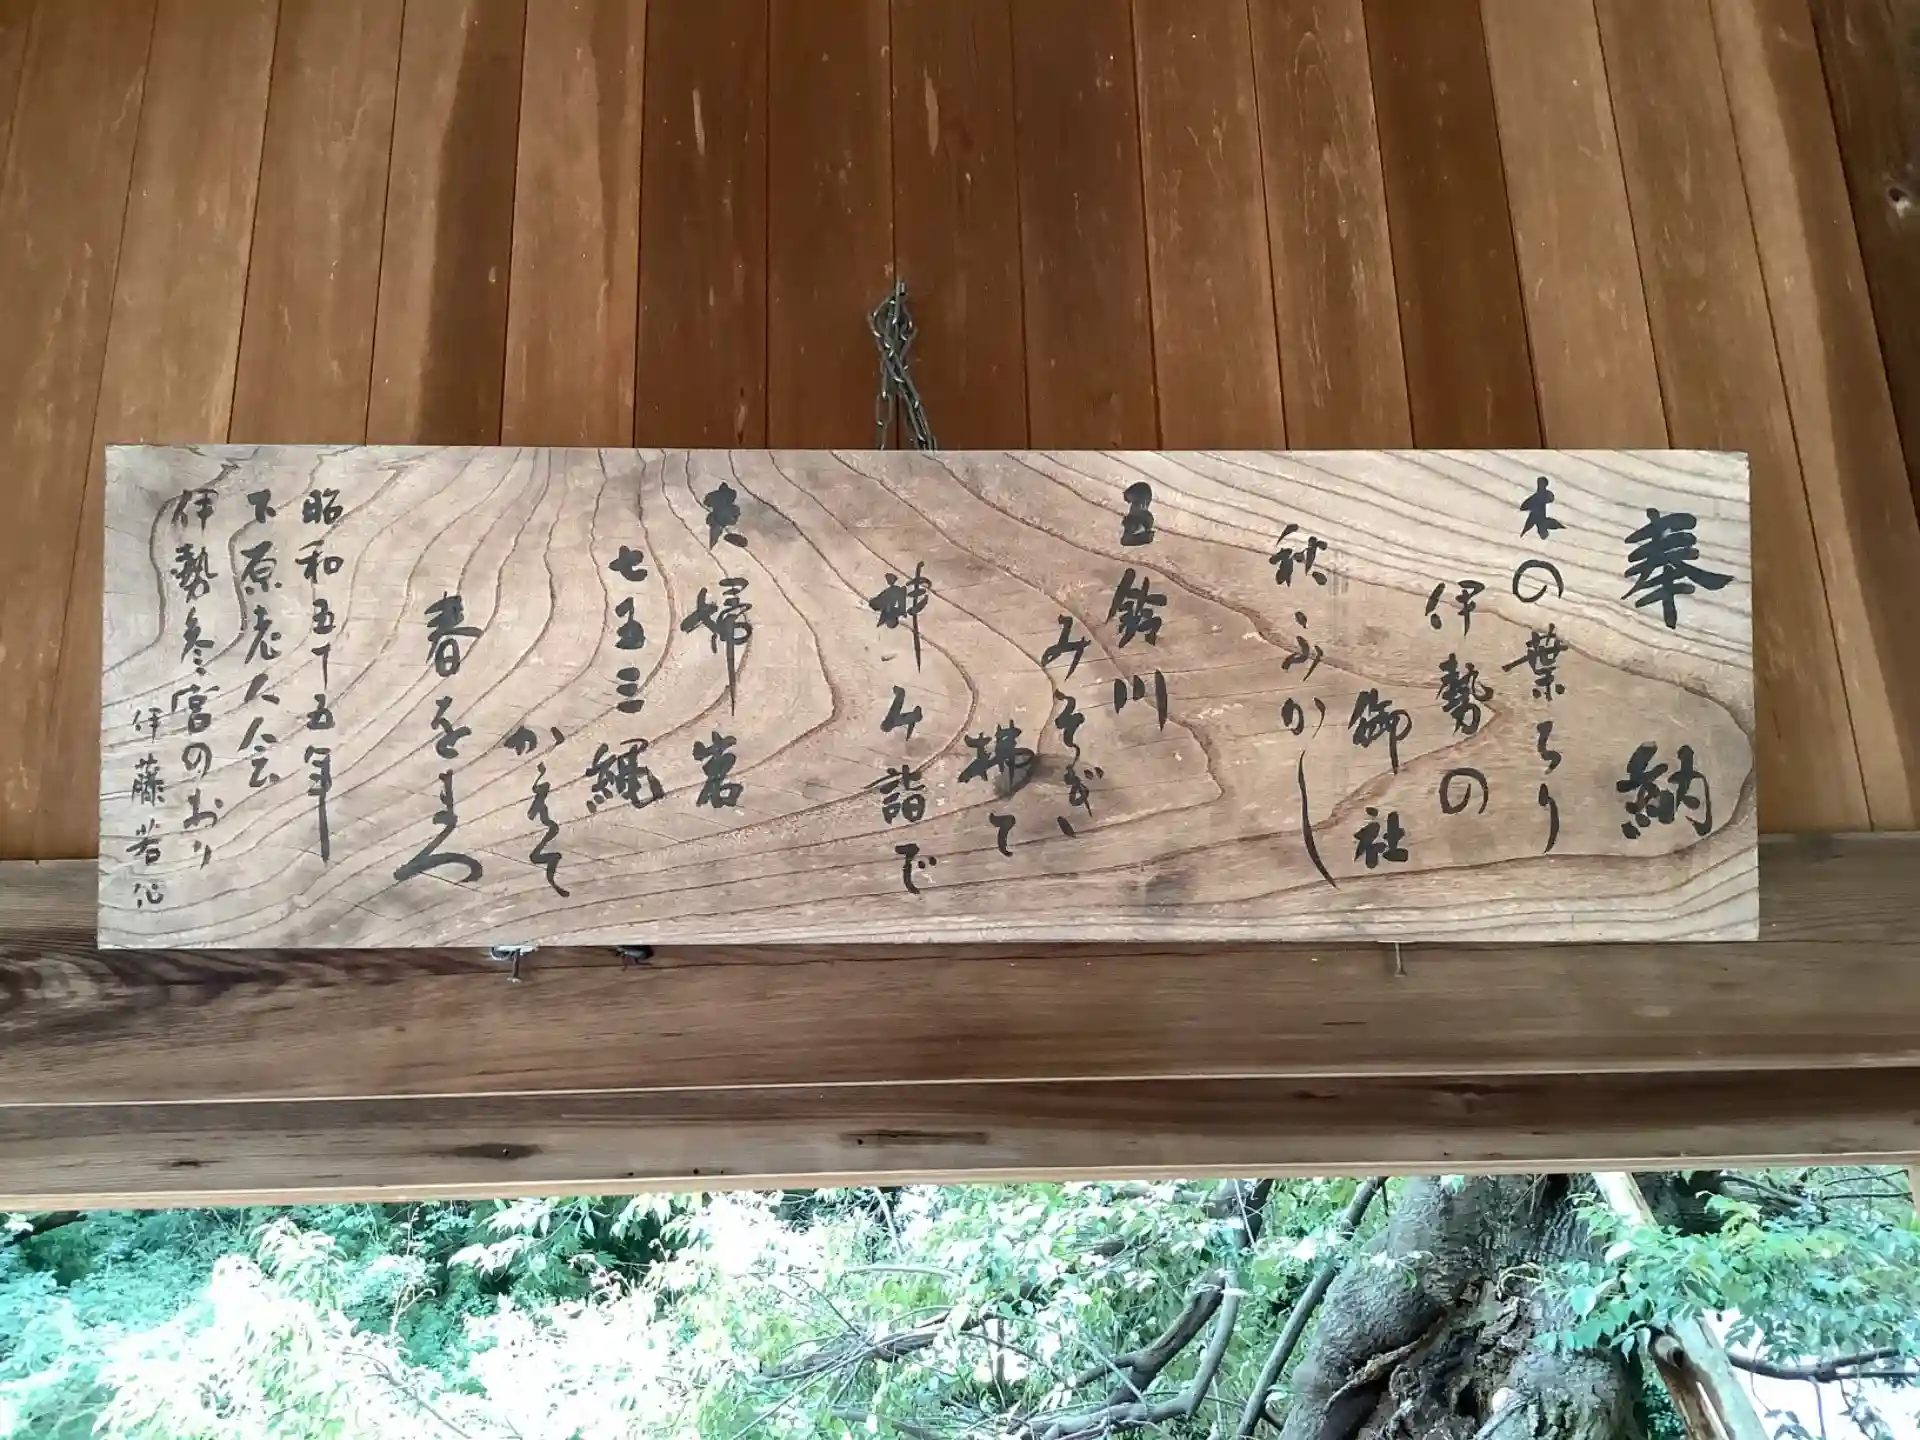 奉納
木の葉ちり
伊勢の
御社
秋ふかし
五鈴川
みそぎ
拂て
神々詣で
夫婦岩
七五三縄
かえて
春をまつ
昭和五十五年
下原老人会
伊勢参宮のおり
伊藤